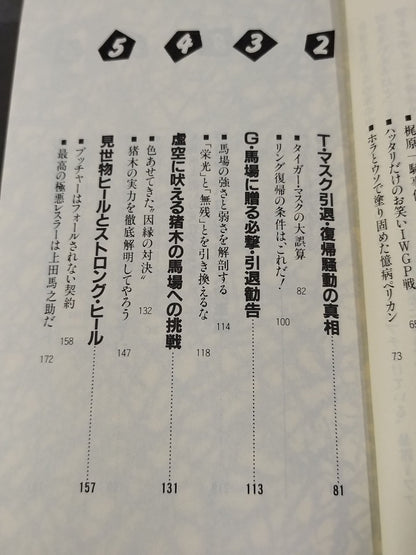 梶原一騎
ハッタリだけのお笑いIWGP戦
69
■ホラとウソで塗り固めた憶病ペリカン
73
2
T・マスク引退・復帰騒動の真相
81
■タイガー・マスクの大誤算
82
■リング復帰の条件は、これだ!
100
3
G・馬場に贈る必撃・引退勧告
113
■馬場の強さと弱さを解剖する
114
■「栄光」と「無残」とを引き換えるな
118
4
虚空に吠える猪木の馬場への挑戦
131
■色あせてきた“因縁の対決”
132
■猪木の実力を徹底解明してやろう
147
5
見世物ヒールとストロング・ヒール
157
■ブッチャーはフォールされない契約
158
■最高の極悪レスラーは上田馬之助だ
172